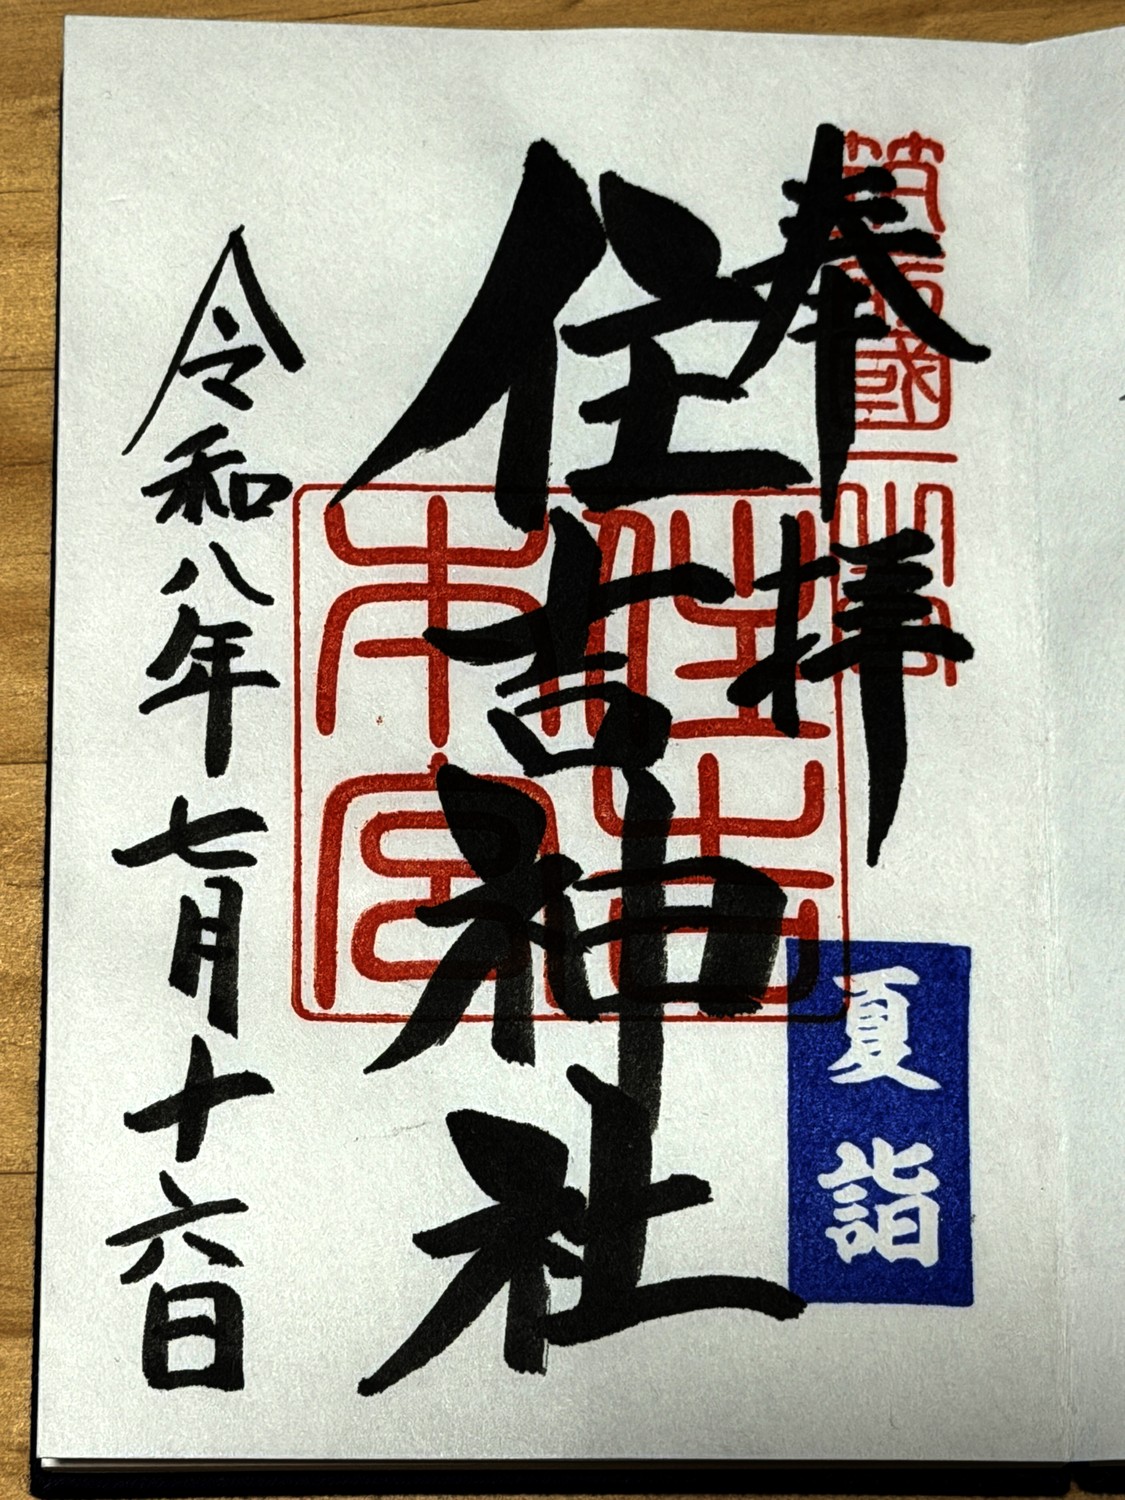 筑前國一之宮
奉拝
夏詣
住吉神社
住吉
本宮
令和八年七月十六日